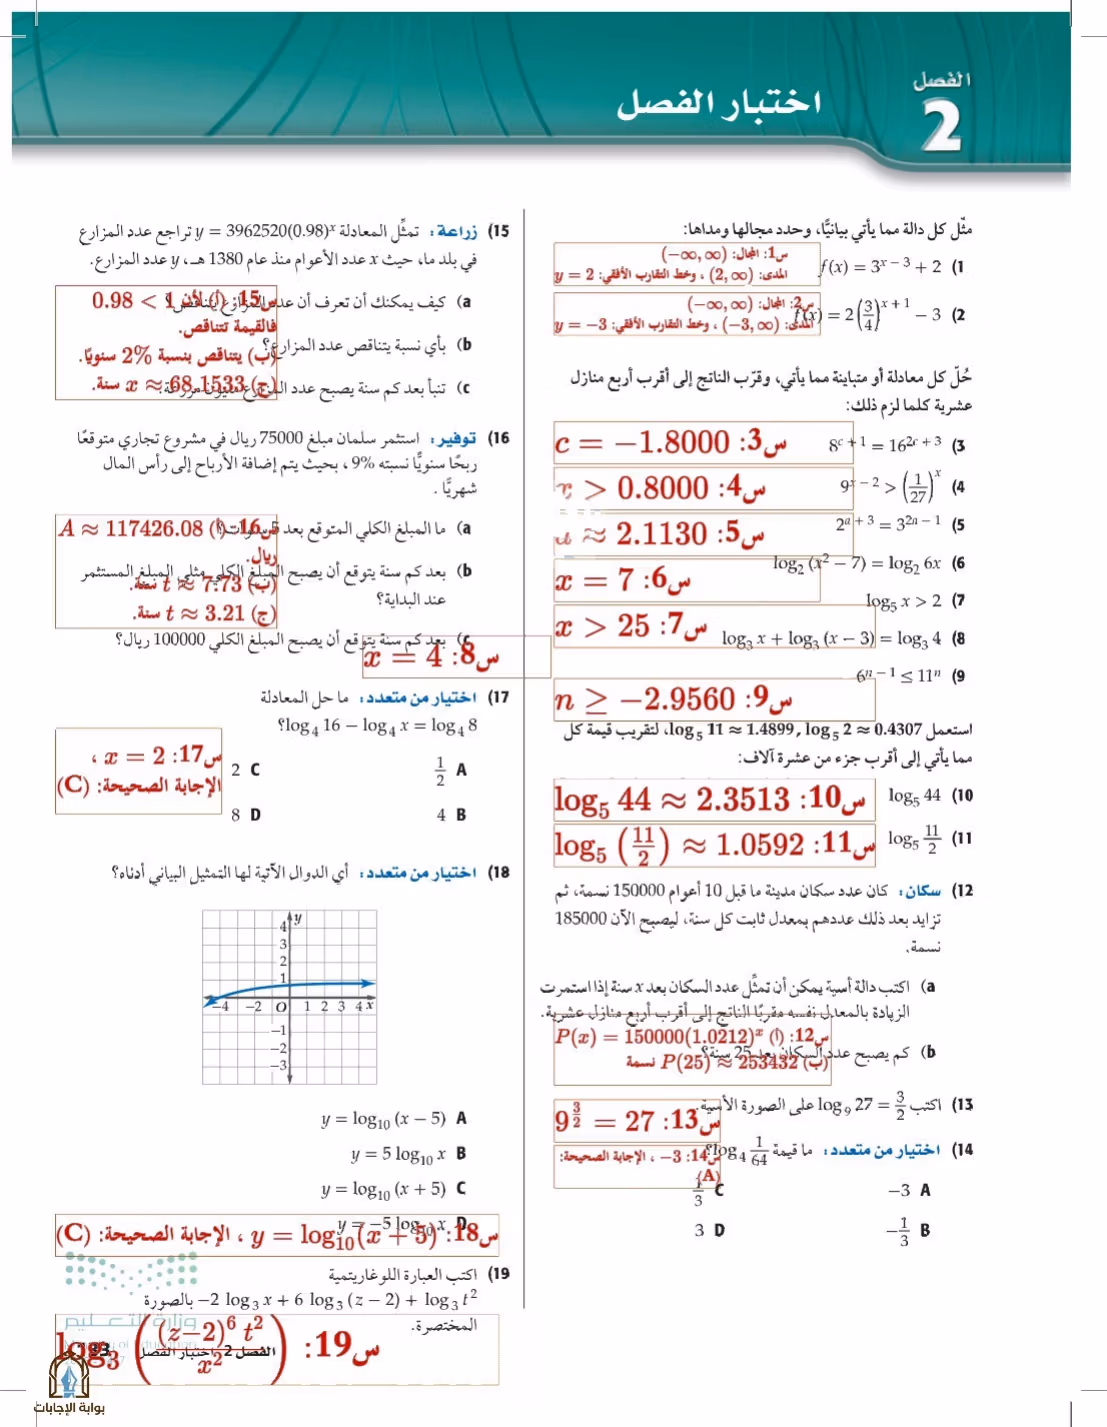 الفصل
2
اختبار الفصل
مثّل كل دالة مما يأتي بيانيًّا، وحدد مجالها ومداها:
(1 f(x) = 3^{x − 3} + 2
س1: المجال: (−∞, ∞)
المدى: (2, ∞) ، وخط التقارب الأفقي: y = 2
(2 f(x) = 2(3/4)^{x + 1} − 3
س2: المجال: (−∞, ∞)
المدى: (−3, ∞) ، وخط التقارب الأفقي: y = −3
حُلّ كل معادلة أو متباينة مما يأتي، وقرّب الناتج إلى أقرب أربع منازل
عشرية كلما لزم ذلك:
(3 8^{c + 1} = 16^{2c + 3}
س3: c = −1.8000
(4 9^{x − 2} > (1/27)^x
س4: x > 0.8000
(5 2^{a + 3} = 3^{2a − 1}
س5: a ≈ 2.1130
(6 log₂ (x² − 7) = log₂ 6x
س6: x = 7
(7 log₅ x > 2
س7: x > 25
(8 log₃ x + log₃ (x − 3) = log₃ 4
س8: x = 4
(9 6^{n − 1} ≤ 11^n
س9: n ≥ −2.9560
استعمل log₅ 11 ≈ 1.4899, log₅ 2 ≈ 0.4307، لتقريب قيمة كل
مما يأتي إلى أقرب جزء من عشرة آلاف:
(10 log₅ 44
س10: log₅ 44 ≈ 2.3513
(11 log₅ 11/2
س11: log₅ (11/2) ≈ 1.0592
(12 سكان: كان عدد سكان مدينة ما قبل 10 أعوام 150000 نسمة، ثم
تزايد بعد ذلك عددهم بمعدل ثابت كل سنة، ليصبح الآن 185000
نسمة.
(a اكتب دالة أسية يمكن أن تمثّل عدد السكان بعد x سنة إذا استمرت
الزيادة بالمعدل نفسه مقربًا الناتج إلى أقرب أربع منازل عشرية.
س12: (أ) P(x) = 150000(1.0212)^x
(b كم يصبح عدد السكان بعد 25 سنة؟
(ب) P(25) ≈ 253432 نسمة
(13 اكتب log₉ 27 = 3/2 على الصورة الأسية.
س13: 9^{3/2} = 27
(14 اختيار من متعدد: ما قيمة log₄ 1/64؟
س14: −3 ، الإجابة الصحيحة:
(A)
A −3
C 1/3
B −1/3
D 3
(15 زراعة: تمثّل المعادلة y = 3962520(0.98)^x تراجع عدد المزارع
في بلد ما، حيث x عدد الأعوام منذ عام 1380 هـ، y عدد المزارع.
(a كيف يمكنك أن تعرف أن عدد المزارع يتناقص؟
س15: (أ) لأن 1 > 0.98
فالقيمة تتناقص.
(b بأي نسبة يتناقص عدد المزارع؟
(ب) يتناقص بنسبة 2% سنويًا.
(c تنبأ بعد كم سنة يصبح عدد المزارع مليون مزرعة.
(ج) x ≈ 68.1533 سنة.
(16 توفير: استثمر سلمان مبلغ 75000 ريال في مشروع تجاري متوقعًا
ربحًا سنويًّا نسبته 9% ، بحيث يتم إضافة الأرباح إلى رأس المال
شهريًّا .
(a ما المبلغ الكلي المتوقع بعد 5 سنوات؟
س16: (أ) A ≈ 117426.08
ريال.
(b بعد كم سنة يتوقع أن يصبح المبلغ الكلي مثلي المبلغ المستثمر
عند البداية؟
(ب) t ≈ 7.73 سنة.
(ج) t ≈ 3.21 سنة.
(c بعد كم سنة يتوقع أن يصبح المبلغ الكلي 100000 ريال؟
(17 اختيار من متعدد: ما حل المعادلة
log₄ 16 − log₄ x = log₄ 8؟
س17: x = 2 ،
الإجابة الصحيحة: (C)
A 1/2
C 2
B 4
D 8
(18 اختيار من متعدد: أي الدوال الآتية لها التمثيل البياني أدناه؟
y
4
3
2
1
−4 −2 O 1 2 3 4 x
−1
−2
−3
A y = log₁₀ (x − 5)
B y = 5 log₁₀ x
C y = log₁₀ (x + 5)
D y = −5 log₁₀ x
س18: y = log₁₀(x + 5) ، الإجابة الصحيحة: (C)
(19 اكتب العبارة اللوغاريتمية
−2 log₃ x + 6 log₃ (z − 2) + log₃ t² بالصورة
المختصرة.
س19: log₃ ((z−2)⁶ t² / x²)
وزارة التعليم
الفصل 2 اختبار الفصل
بوابة الإجابات